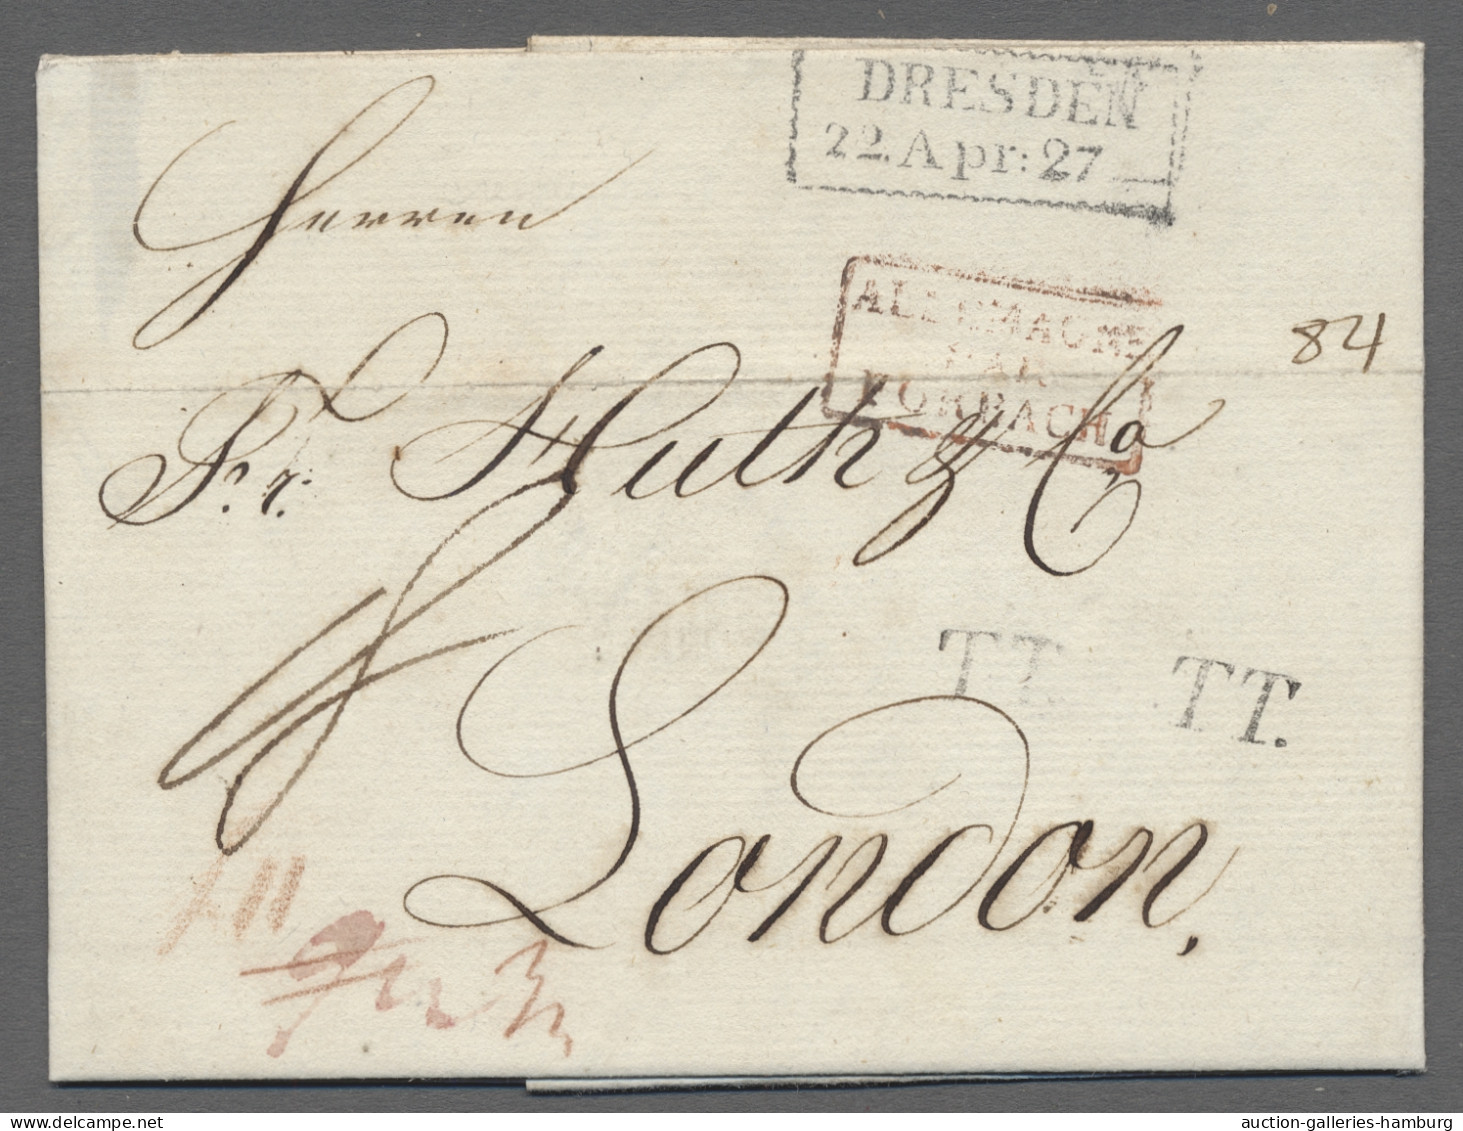 DRESDEN
22.Apr:27
Herren
ALLEMAGNE
PAR
FORBACH
84
Fr. Huth & Co
TT. TT.
London.
auction-galleries-hamburg